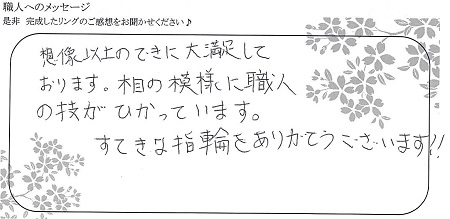 職人へのメッセージ
是非 完成したリングのご感想をお聞かせください♪
想像以上のできに大満足して
おります。相の模様に職人
の技がひかっています。
すてきな指輪をありがとうございます!!